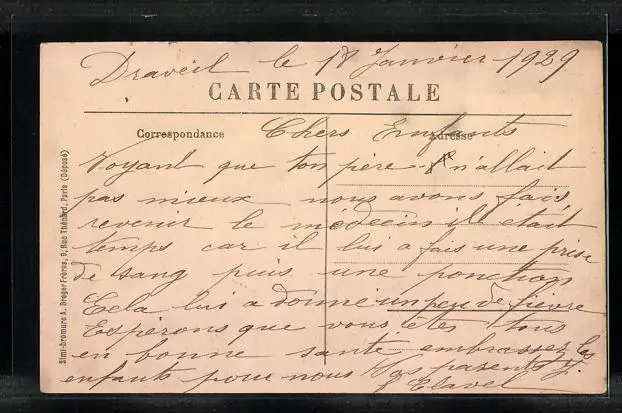 Draveil le 18 Janvier 1929
CARTE POSTALE
Correspondance Chers Enfants Adresse
Voyant que ton père n'allait
pas mieux nous avons fais
revenir le médecin il était
temps car il lui a fais une prise
de sang puis une ponction
Cela lui a donné un peu de fièvre
Espérons que vous êtes tous
en bonne santé embrassez les
enfants pour nous Vos parents
Simi-bromure A. Breger Frères, 9, Rue Thénard, Paris (Déposé)